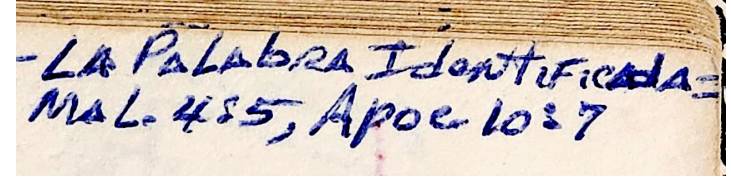 - La Palabra Identificada =
Mal. 4:5, Apoc 10:7